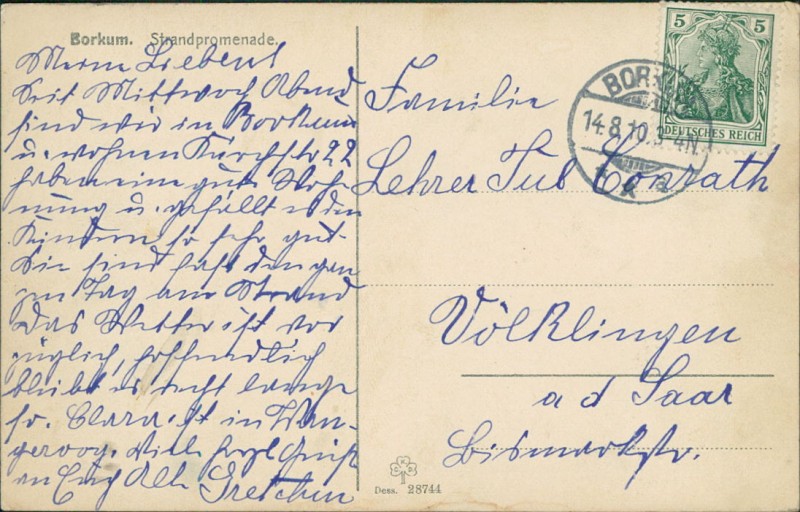 Borkum. Strandpromenade.
Meine Lieben!
Seit Mittwoch Abend
sind wir in Borkum
u. wohnen Kirchstr 22
haben eine gute Woh-
nung u. gefällt es den
Kindern so sehr gut.
Sie sind fast den gan
zen Tag am Strand
Das Wetter ist vor
züglich, hoffendlich
bleibt es recht lange
so. Clara ist in Wan-
geroog. Viele herzl Grüße
an Euch Alle Gretchen
Familie
Lehrer Jul Conrath
Völklingen
a d Saar
Bismarkstr.
5 5
DEUTSCHES REICH
BORKUM
14.8.10.3-4N.
a
Dess. 28744